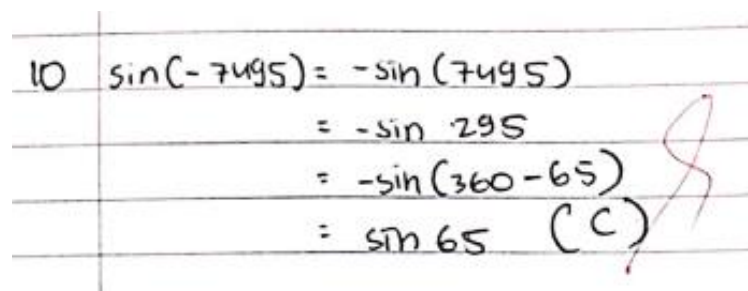 10 sin(-7495) = -sin(7495)
= -sin 295
= -sin(360-65)
= sin 65 (C)